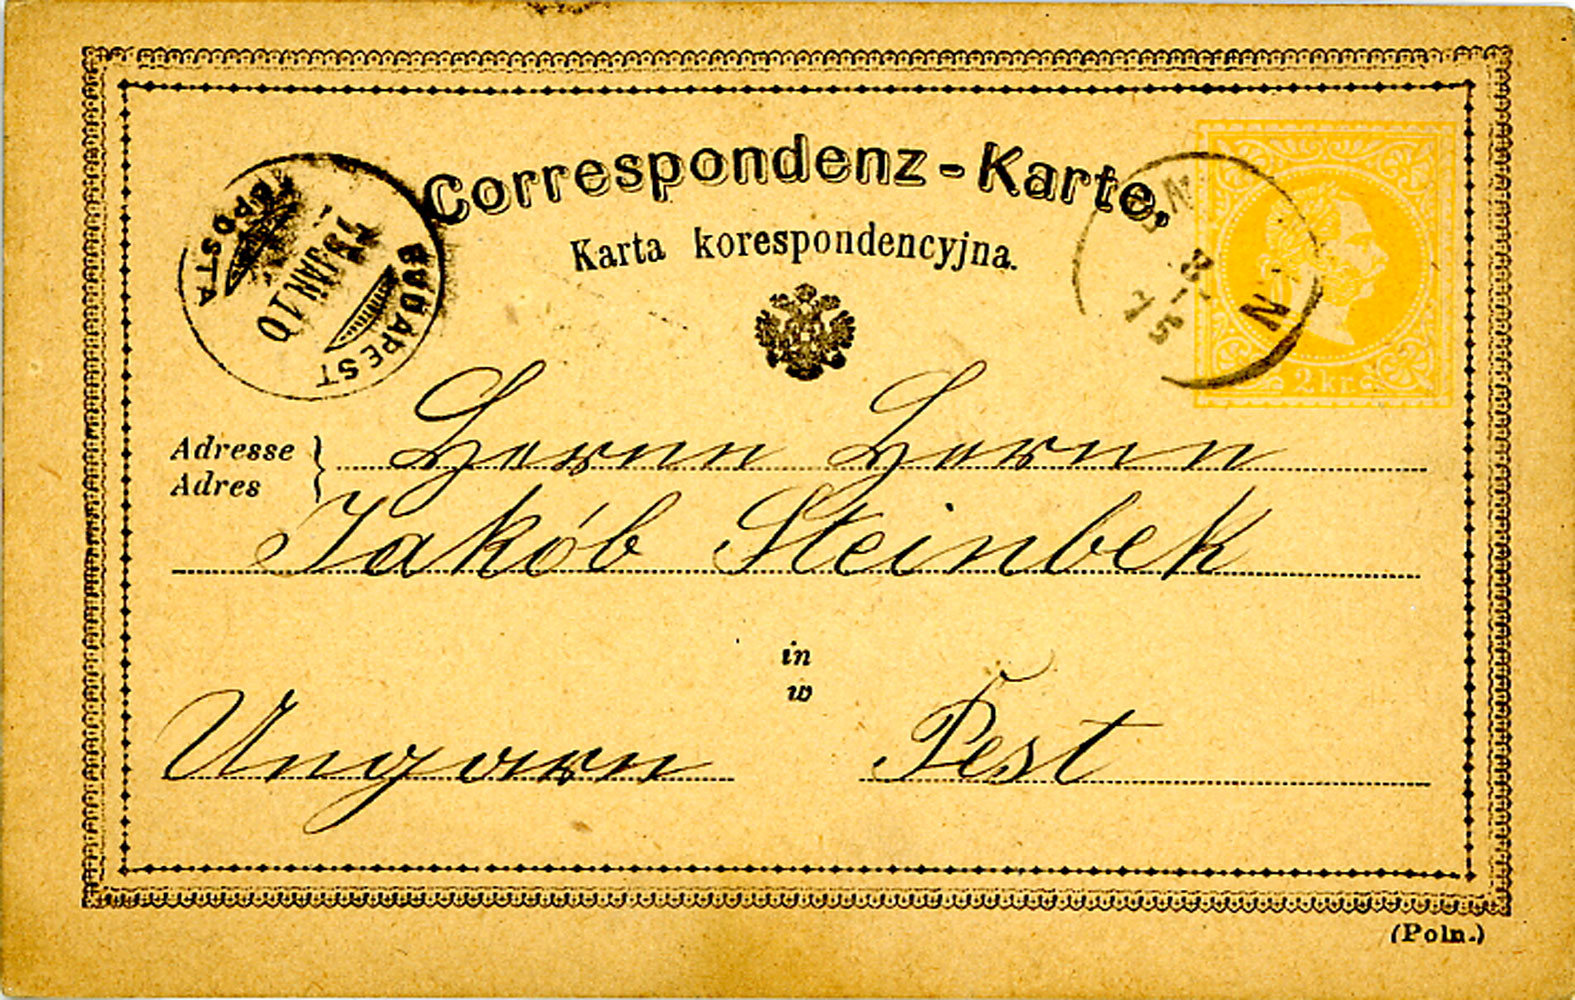 Correspondenz-Karte.
Karta korespondencyjna.
BUDAPEST
POSTA
JAN 10
N
8
75
N
2 kr.
Adresse
Adres
Herrn Herrn
Jakób Steinbek
in
w
Ungarn Pest
(Poln.)